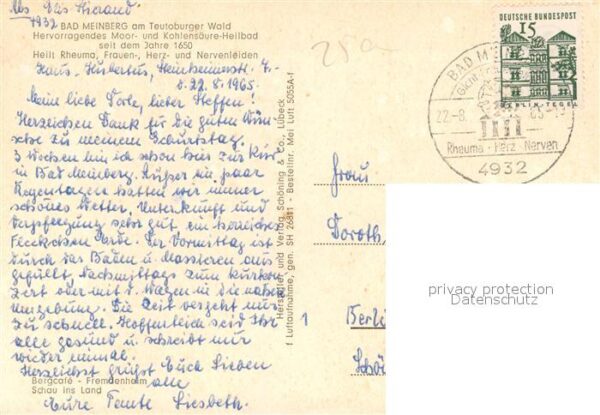 Abs. Elis
4932 BAD MEINBERG am Teutoburger Wald
Hervorragendes Moor- und Kohlensäure-Heilbad
seit dem Jahre 1650
Heilt Rheuma, Frauen-, Herz- und Nervenleiden
Haus Hubertus, 7.
d. 22.8.1965.
Mein liebe Dorle, lieber Steffen!
Herzlichen Dank für die guten Wün
sche zu meinem Geburtstag.
3 Wochen bin ich schon hier zur Kur
in Bad Meinberg. Außer ein paar
Regentagen hatten wir immer
schönes Wetter. Unterkunft und
Verpflegung sehr gut, ein herrliches
Fleckchen Erde. Der Vormittag ist
durch das Baden u. Massieren aus
gefüllt, nachmittags zum Kurkon
zert oder mit d. Wagen in die nähe
Umgebung. Die Zeit vergeht nur
zu schnell. Hoffentlich seid Ihr
alle gesund u. schreibt mir
wieder einmal.
Herzlichst grüßt Euch Lieben
alle
Eure Tante Liesbeth.
Bergcafé - Fremdenheim
Schau ins Land
Hersteller und Verlag Schöning & Co., Lübeck
f Luftaufnahme, gen. SH 26811 - Bestellnr. Mei Luft S055A-f
25a
DEUTSCHE BUNDESPOST
15
BERLIN-TEGEL
BAD MEIN
22-8.
Rheuma · Herz · Nerven
4932
Frau
Doroth
1 Berli
Schö
privacy protection
Datenschutz